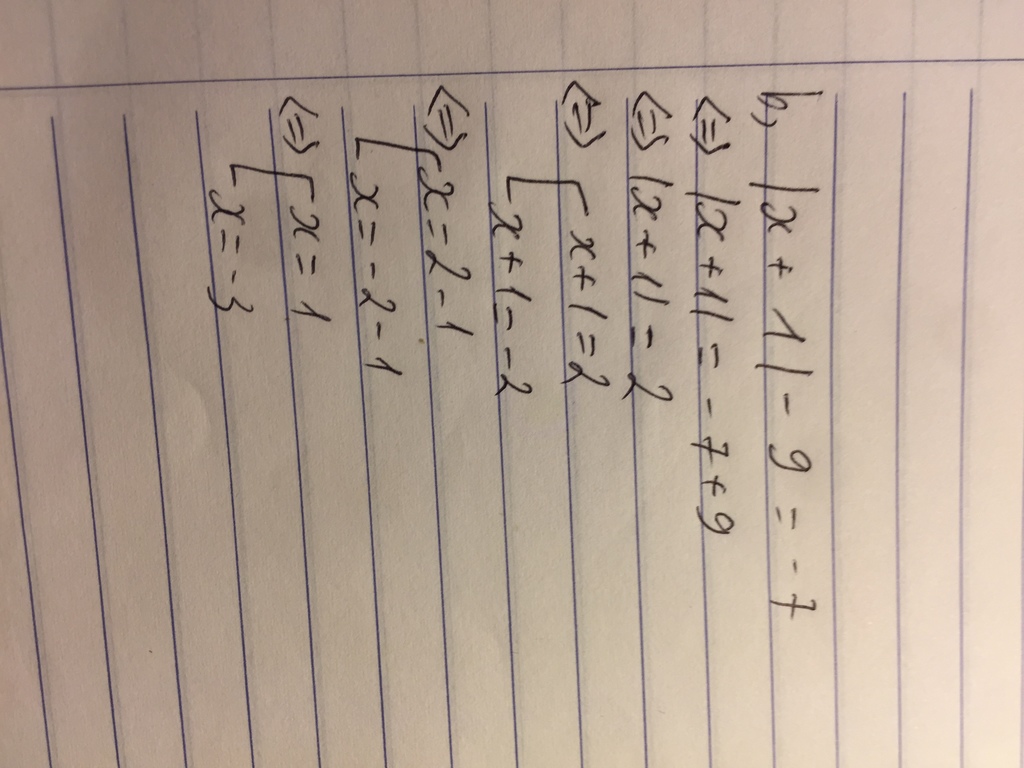 b, |x + 1| - 9 = - 7
<=> |x + 1| = - 7 + 9
<=> |x + 1| = 2
<=> [ x + 1 = 2
x + 1 = - 2
<=> [ x = 2 - 1
x = - 2 - 1
<=> [ x = 1
x = - 3